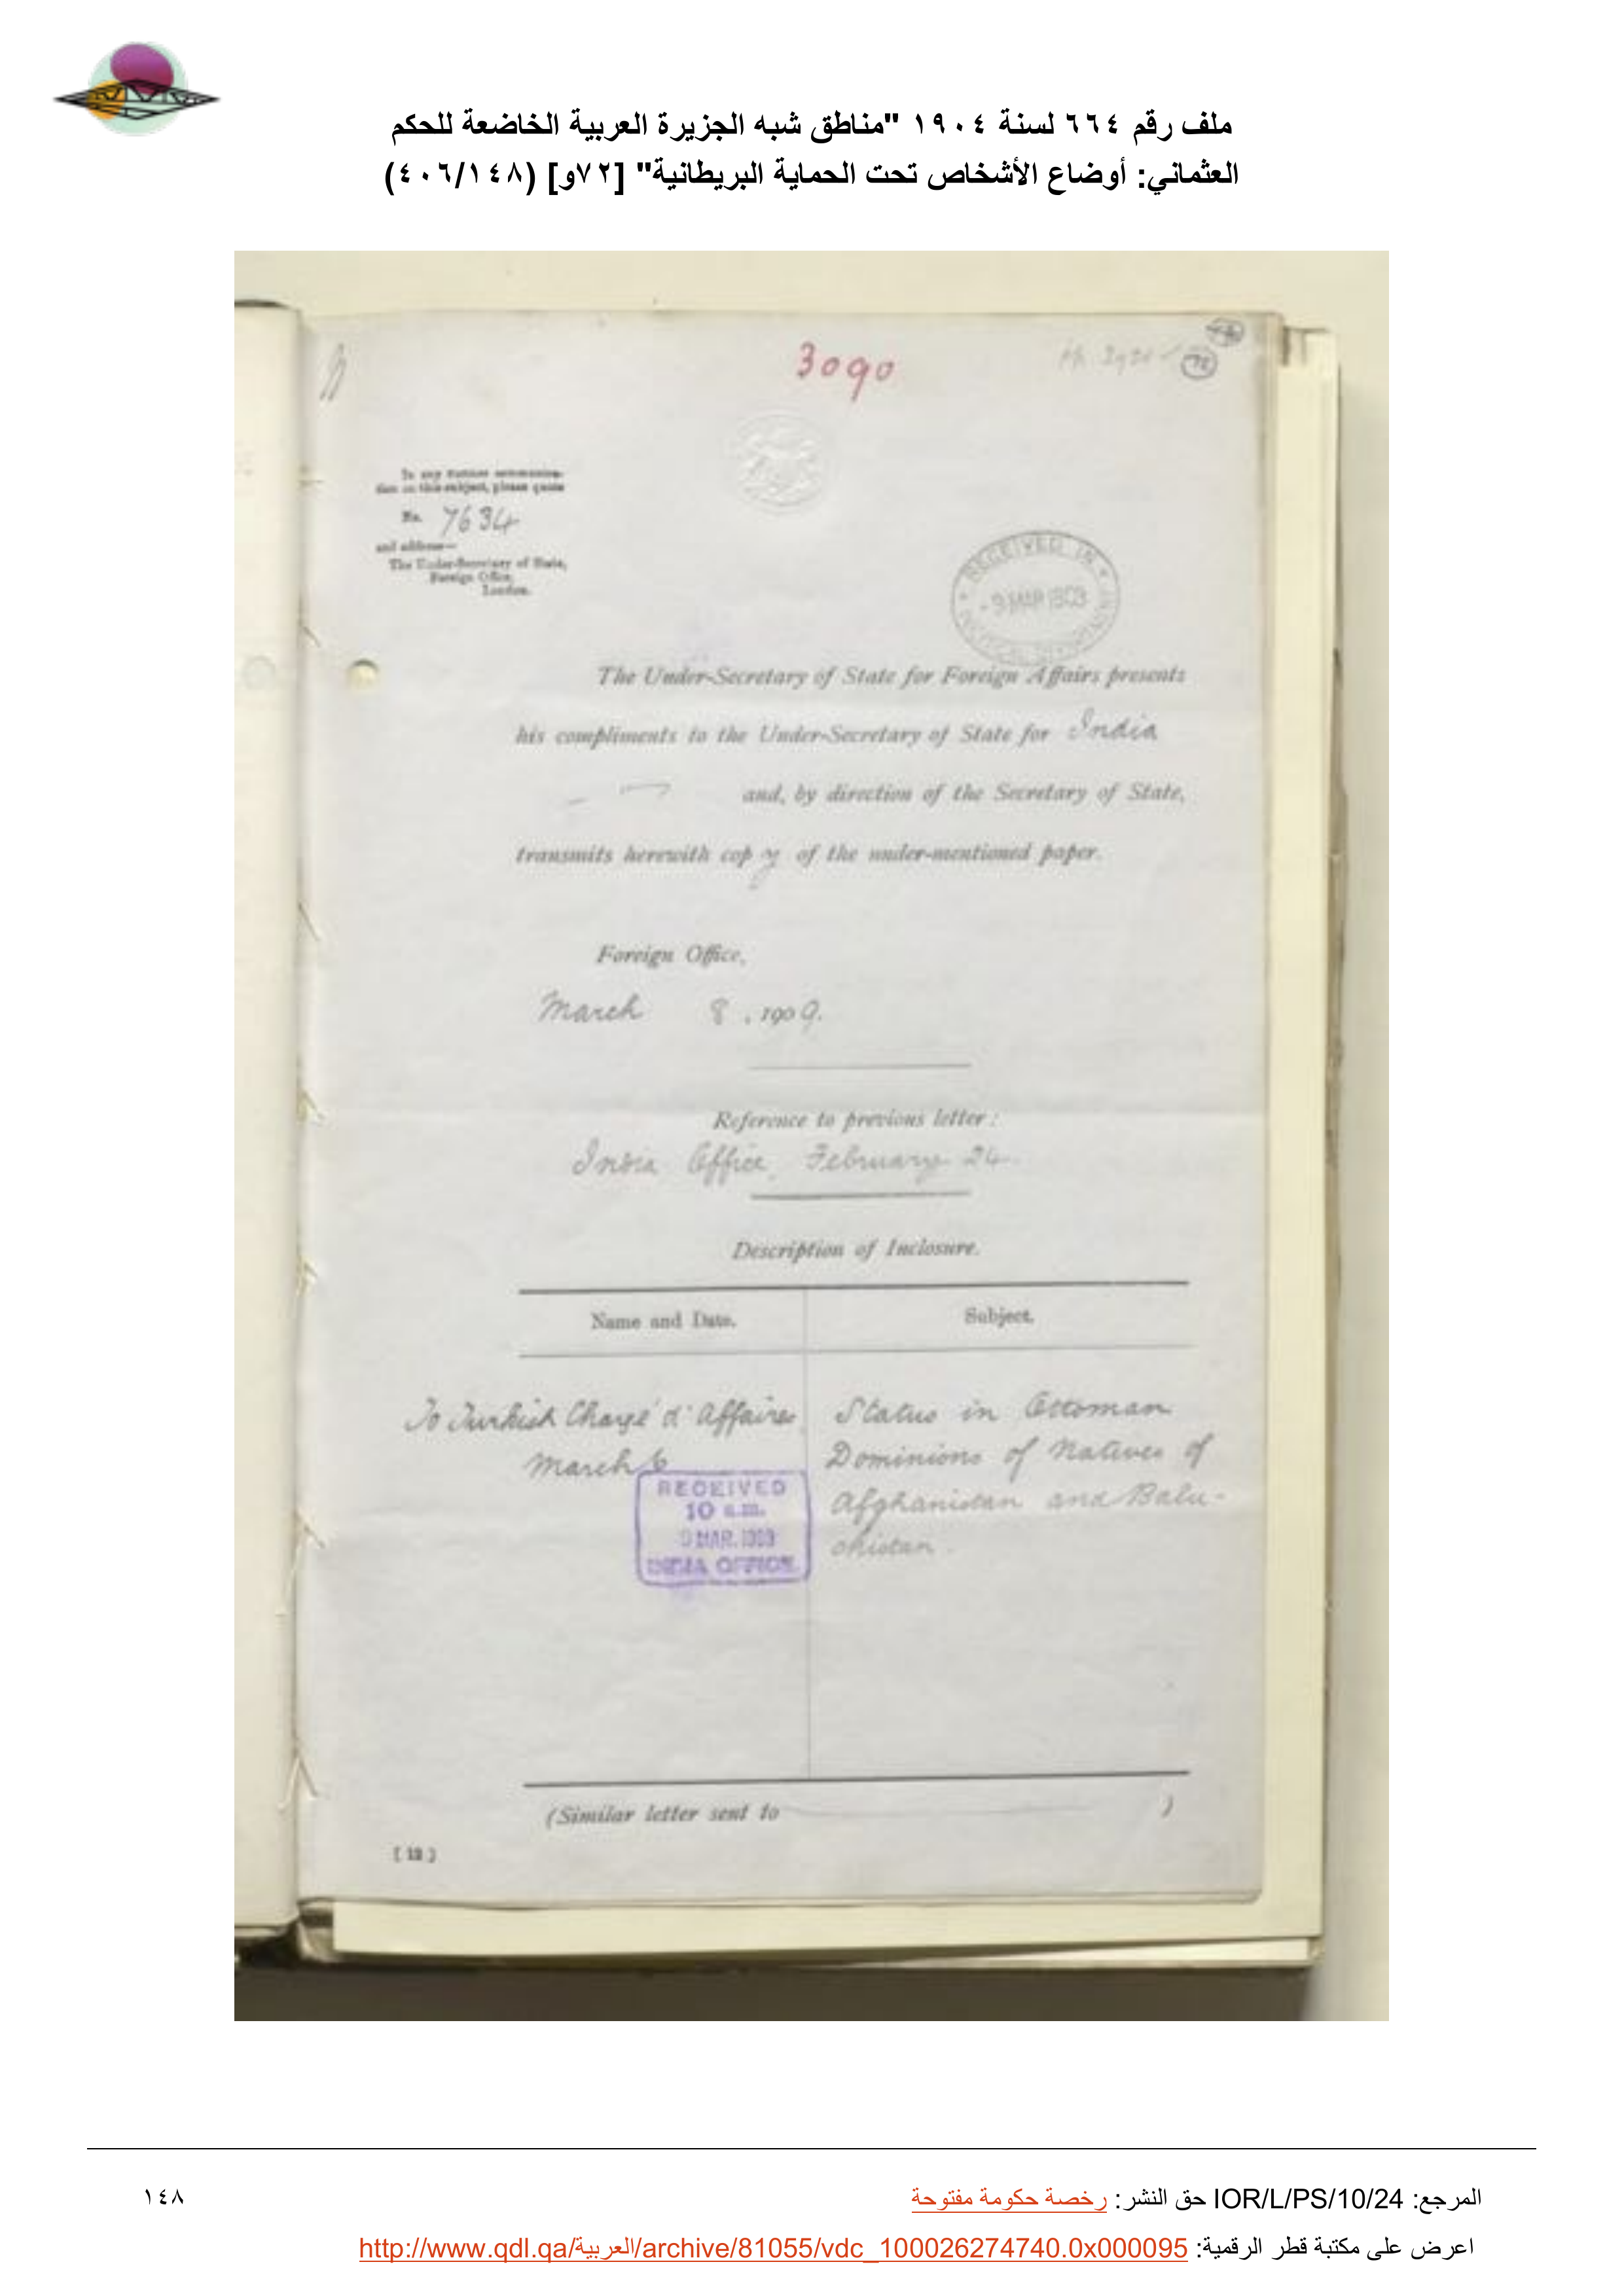 ملف رقم ٦٦٤ لسنة ١٩٠٤ "مناطق شبه الجزيرة العربية الخاضعة للحكم
العثماني: أوضاع الأشخاص تحت الحماية البريطانية" [٧٢و] (٤٠٦/١٤٨)
3090
In any further communica-
tion on this subject, please quote
No. 7634
and address—
The Under-Secretary of State,
Foreign Office,
London.
RECEIVED IN
9 MAR 1909
The Under-Secretary of State for Foreign Affairs presents
his compliments to the Under-Secretary of State for India
and, by direction of the Secretary of State,
transmits herewith copy of the under-mentioned paper.
Foreign Office,
March 8, 1909.
Reference to previous letter:
India Office, February 24.
Description of Inclosure.
Name and Date. Subject.
To Turkish Chargé d'Affaires, Status in Ottoman
March 6 Dominions of Natives of
Afghanistan and Balu-
chistan.
RECEIVED
10 a.m.
9 MAR. 1909
INDIA OFFICE
(Similar letter sent to )
المرجع: IOR/L/PS/10/24 حق النشر: رخصة حكومة مفتوحة
١٤٨
اعرض على مكتبة قطر الرقمية: http://www.qdl.qa/العربية/archive/81055/vdc_100026274740.0x000095